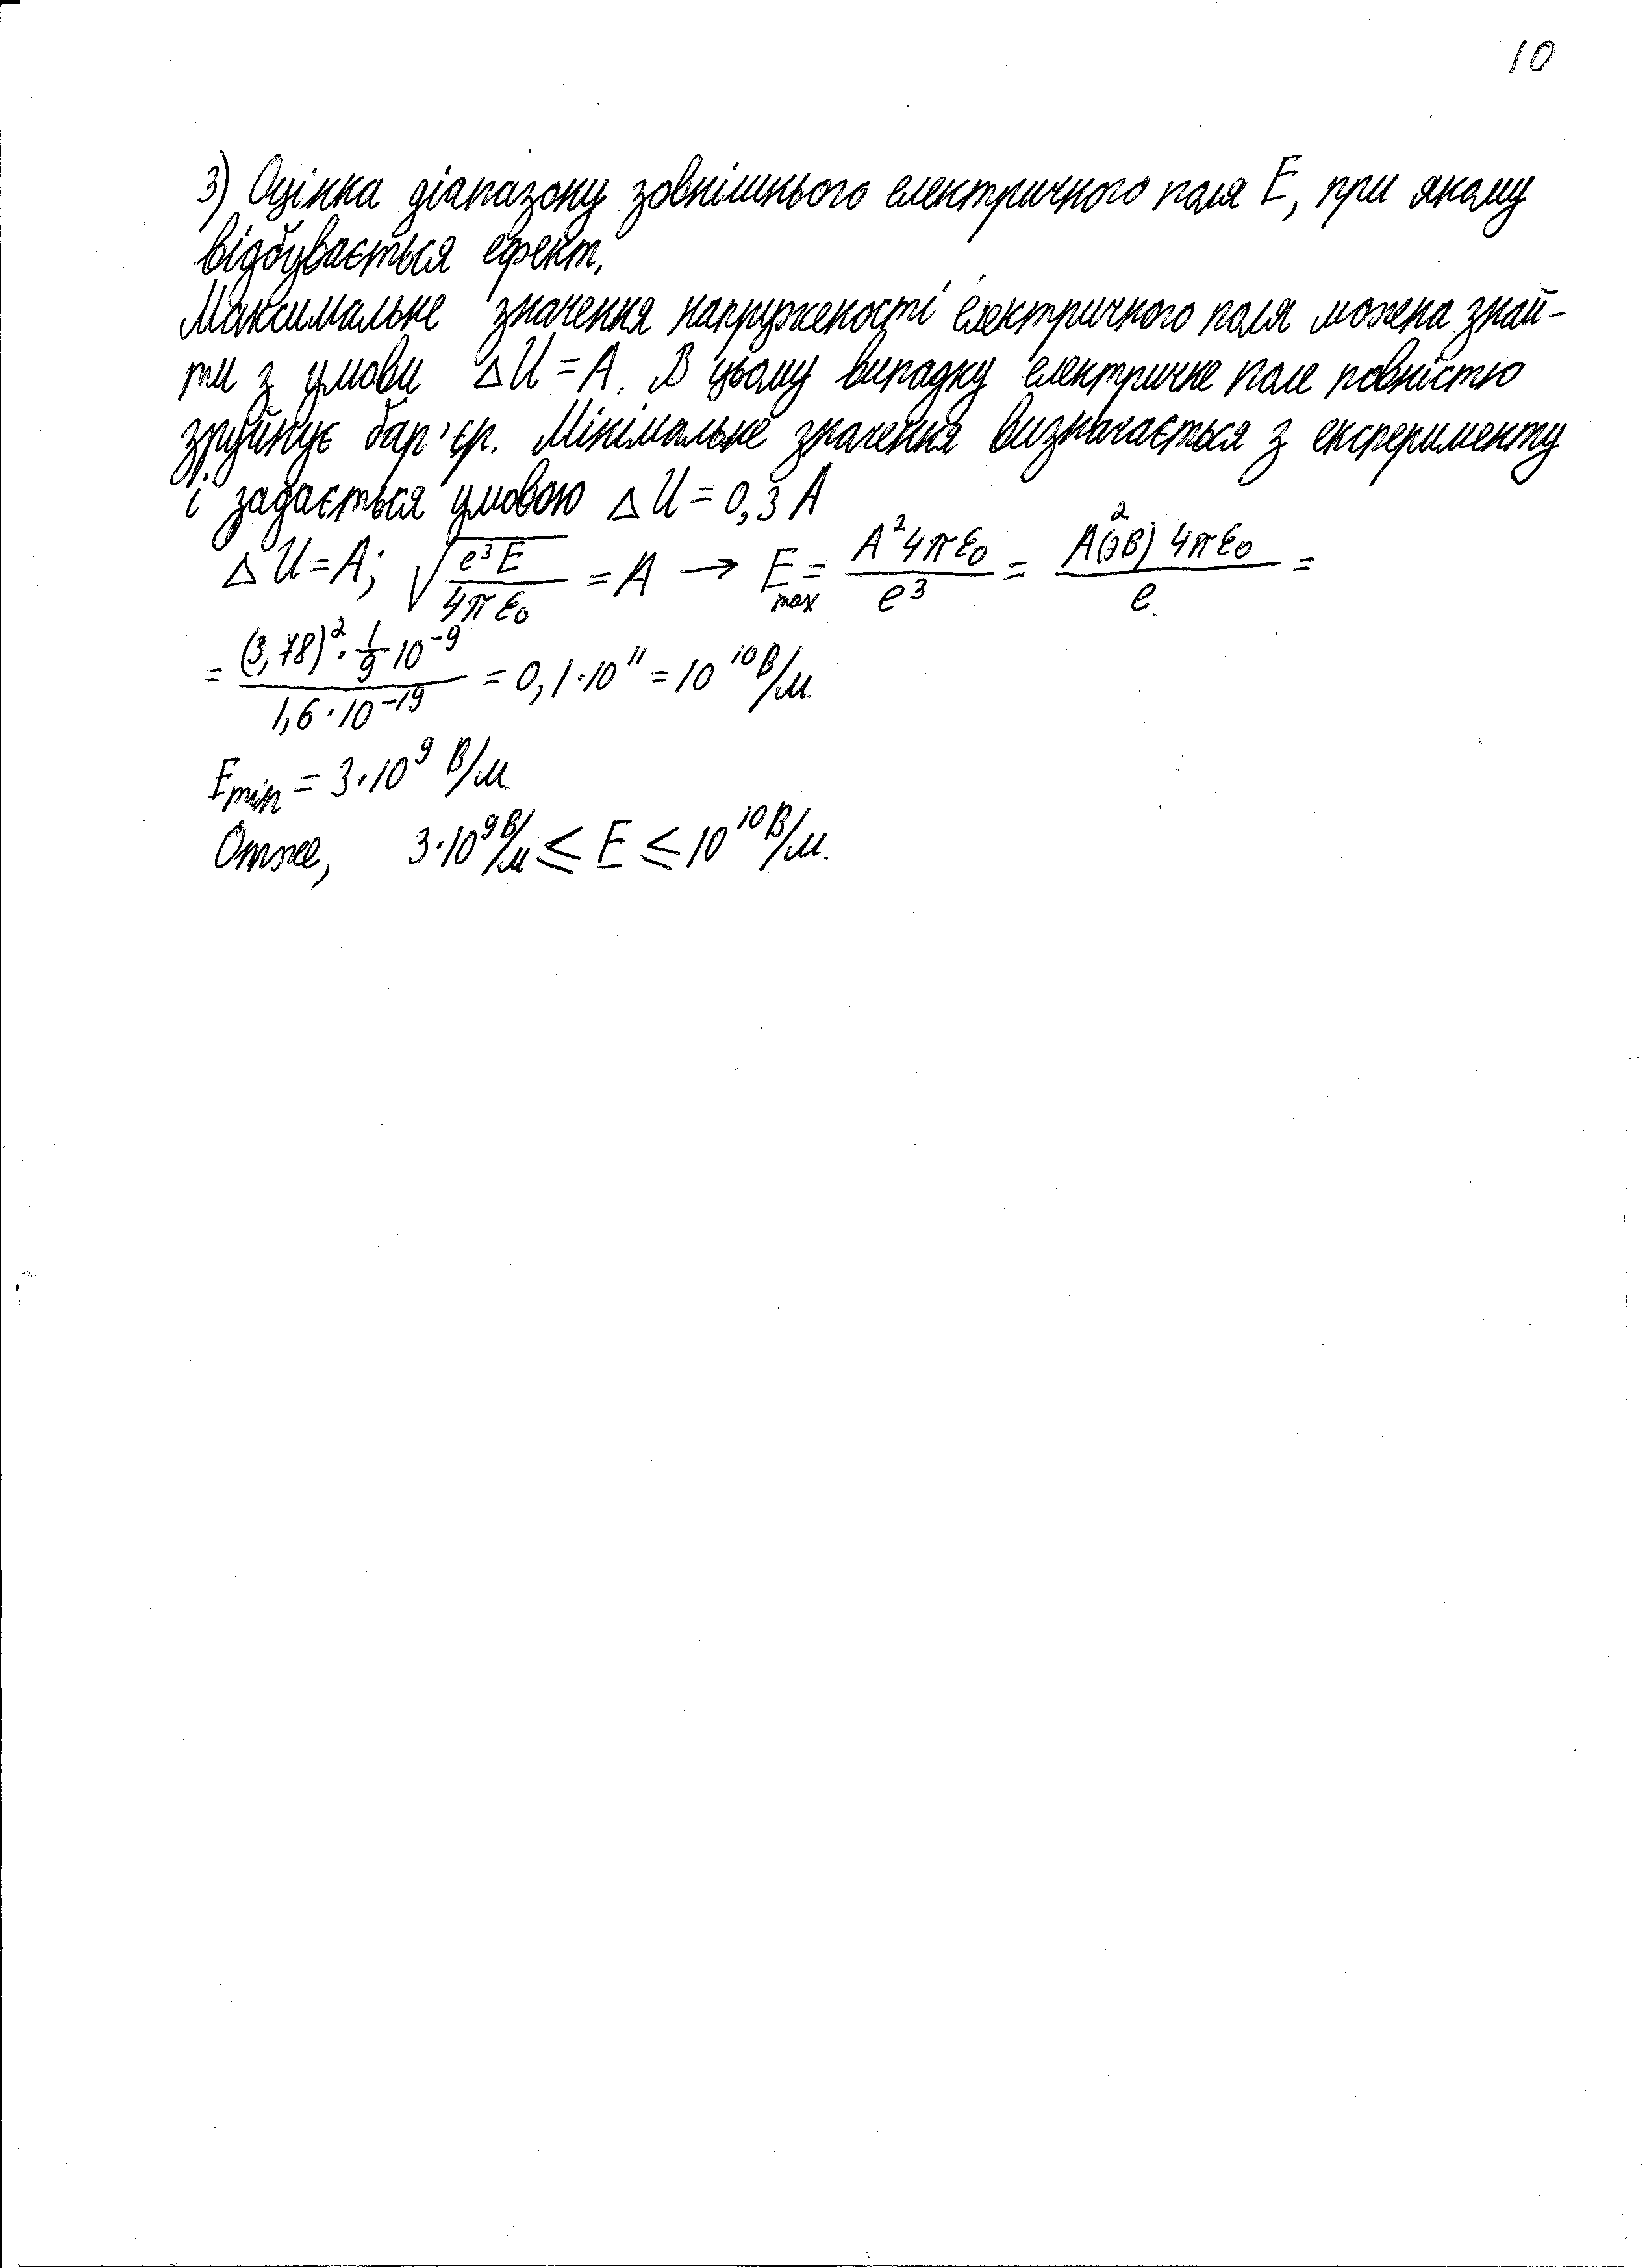 10
3) Оцінка діапазону зовнішнього електричного поля E, при якому
відбувається ефект.
Максимальне значення напруженості електричного поля можена знай-
ти з умови ΔU = A. В цьому випадку електричне поле повністю
зруйнує бар'єр. Мінімальне значення визначається з експерименту
і задається умовою ΔU = 0,3 A
ΔU = A; √(e³E / 4πε₀) = A → E max = A² 4πε₀ / e³ = A²(эВ) 4πε₀ / e =
= (3,78)² · 1/9 · 10⁻⁹ / 1,6 · 10⁻¹⁹ = 0,1 · 10¹¹ = 10¹⁰ В/м.
E min = 3 · 10⁹ В/м.
Отже, 3 · 10⁹ В/м ≤ E ≤ 10¹⁰ В/м.